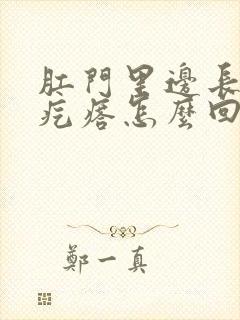 肛門里邊長
疙瘩怎麼回
鄭一真